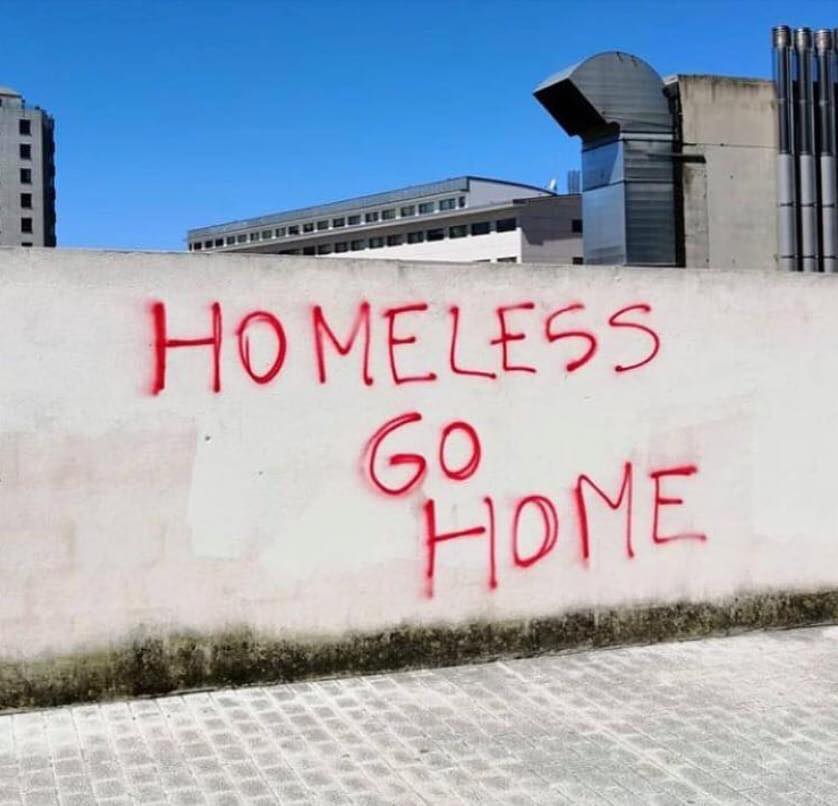 HOMELESS
GO
HOME